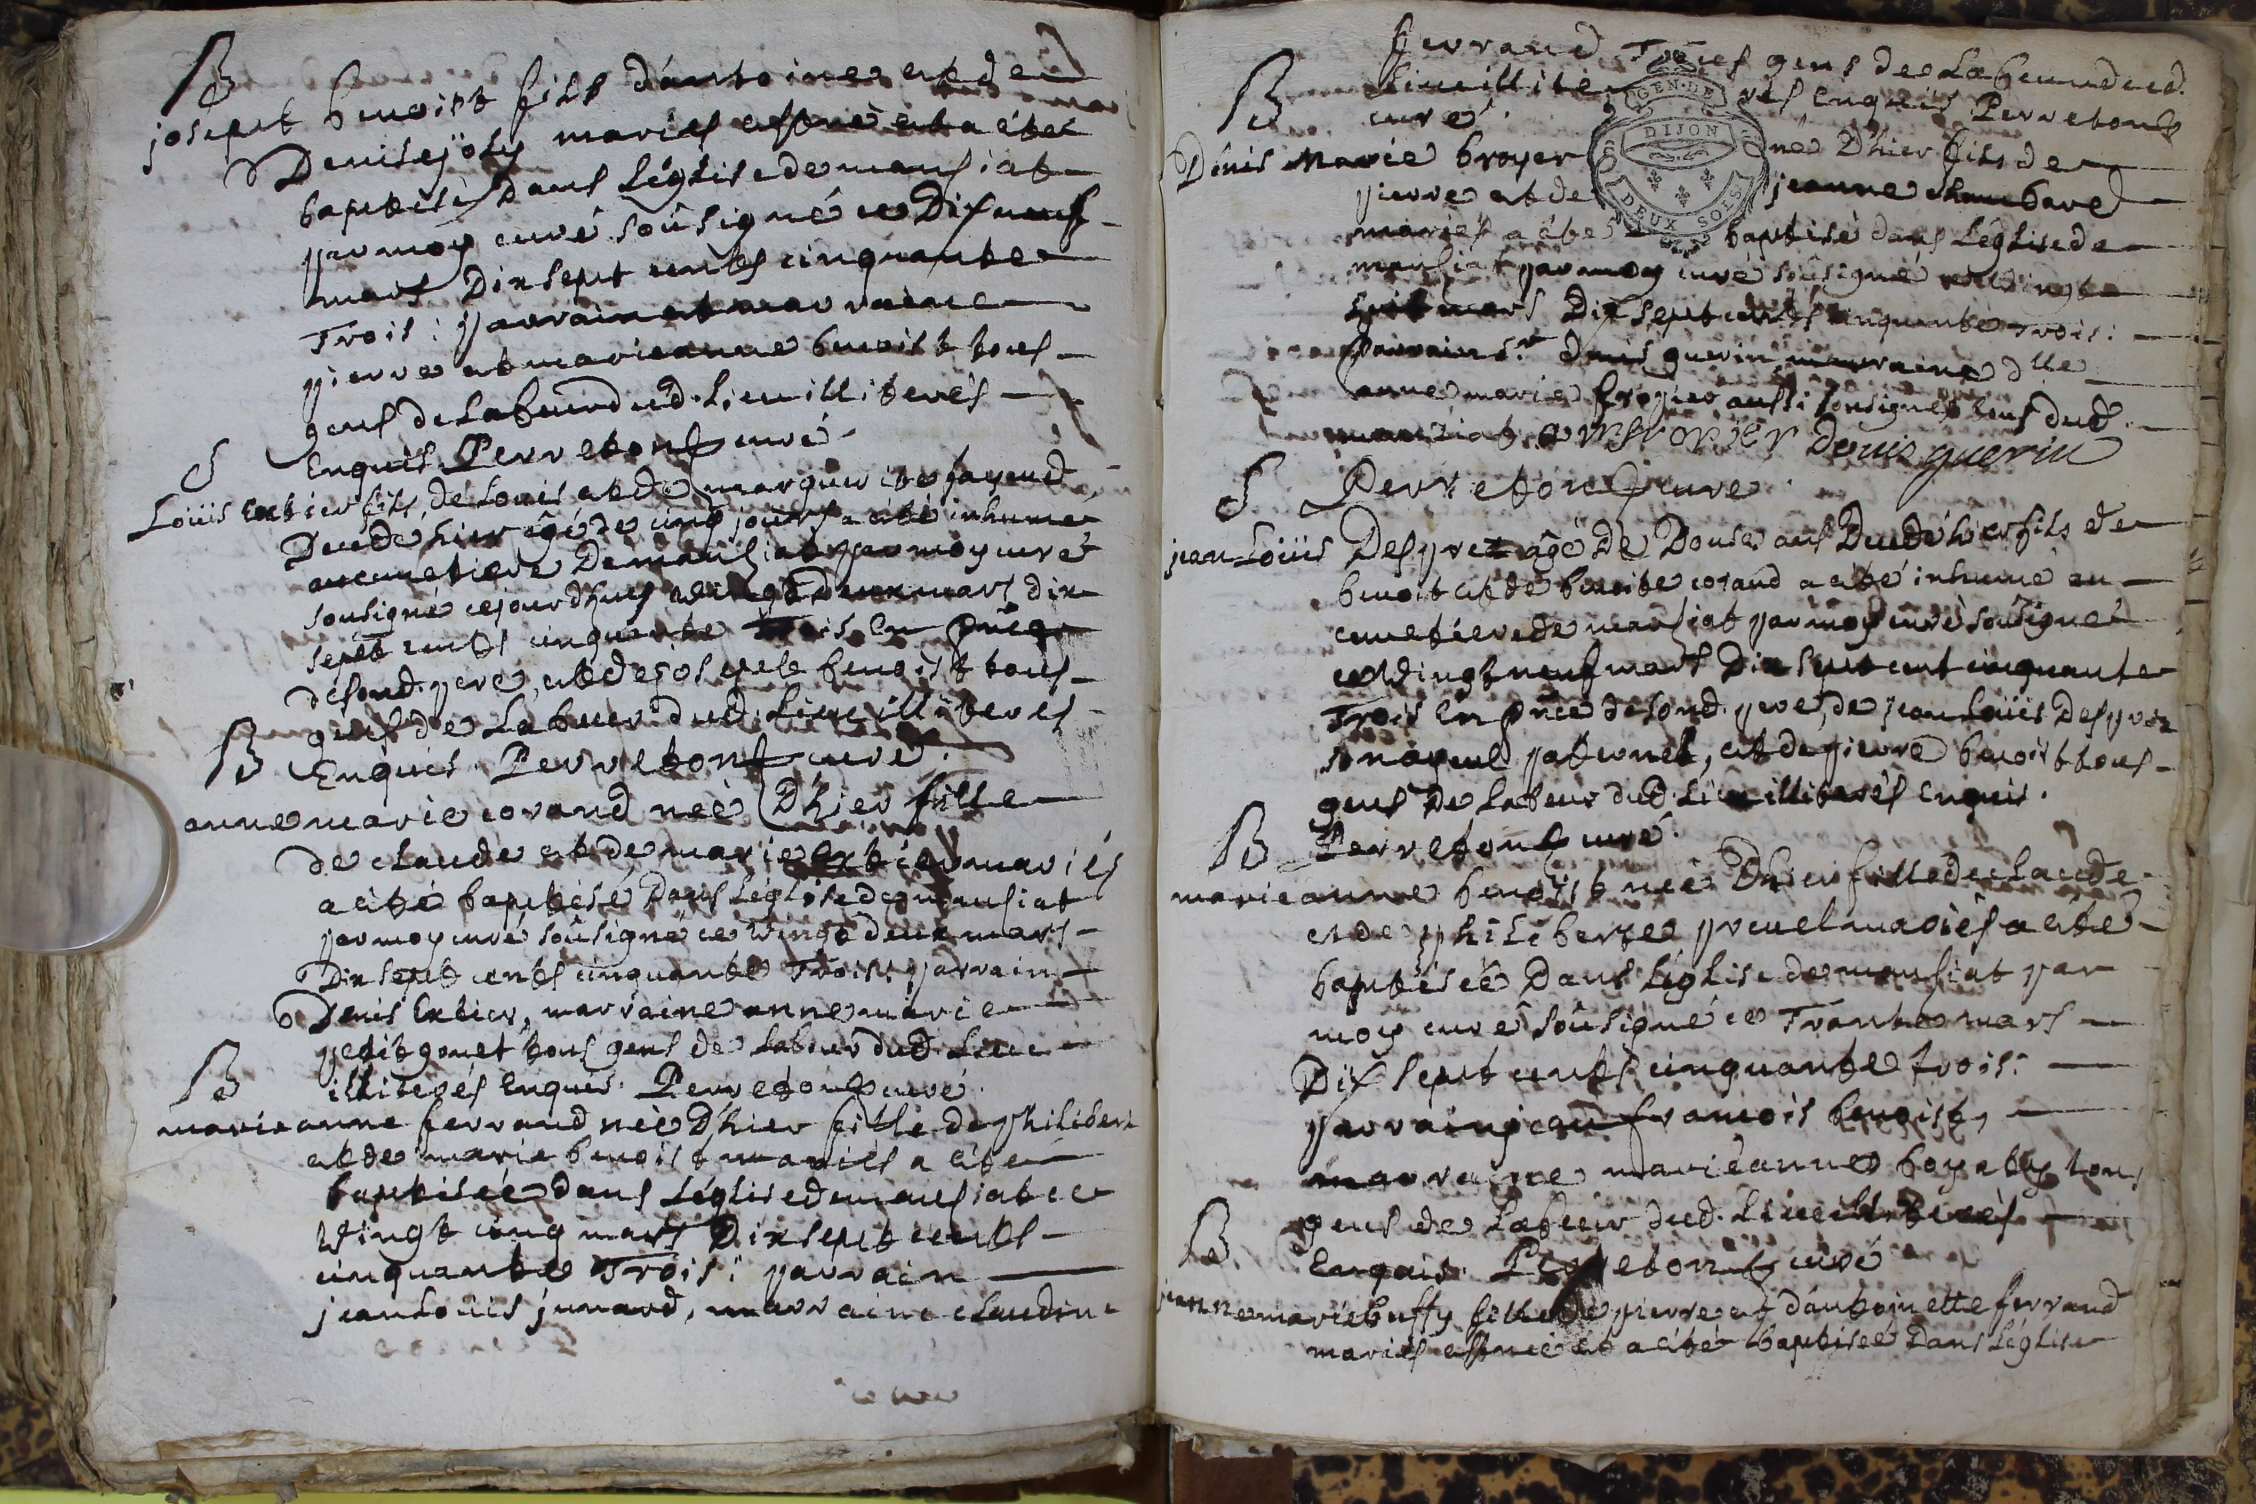 B
josept benoist fils d'antoine et de
Denise joly mariés est né et a été
baptisé dans l'église de mansiat
par moy curé soûsigné ce Dix neuf
mars Dix sept cents cinquante
Trois: parrain et marraine
pierre et marieanne benoist tous
gens de labeur dud. lieu illiterés
Enquis. Perreton curé.
S
Loüis Extier fils de Louis et de marguerite fayend
Decedé hier âgé de cinq jours a été inhumé
au cimetiere de mansiat par moy curé
sousigné cejourdhuy vingt Deux mars dix
sept cents cinquante Trois en pnce
de sond. pere, et de joseple benoist tous
gens de Labeur dud. Lieu illiterés
Enquis. Perreton curé.
B
anne marie corand née D'hier fille
de claude et de marie Extier mariés
a été baptisé Dans l'église de mansiat
par moy curé soûsigné ce vingt deux mars
Dix sept cents cinquante Trois: parrain
Denis Extier, marraine anne marie
petit gonet tous gens de labeur dud. Lieu
illiterés Enquis. Perreton curé.
B
marie anne ferrand née D'hier fille de philibert
et de marie benoist mariés a été
baptisée dans l'église de mansiat ce
vingt cinq mars Dix sept cents
cinquante Trois: parrain
jean Loüis junard, marraine claudine
ferrand Tous gens de Labeur dud.
Lieu illiterés Enquis Perreton
curé.
B
Denis Marie broyer né D'hier fils de
pierre et de jeanne chambard
mariés a été baptisé dans l'église de
mansiat par moy curé soûsigné ce vingt
huit mars Dix sept cents cinquante Trois:
Parrain Sr. denis guerin, marraine dlle
anne marie broyer aussi sousignés tous dud.
mansiat. denis guerin
S
Perreton curé.
jean-Loüis Desprez âgé de Douse ans Decedé hier fils de
benoit et de benoite corand a été inhumé au
cimetiere de mansiat par moy curé soûsigné
ce vingt neuf mars Dix sept cent cinquante
Trois En pnce de sond. pere, de jean Loüis Desprez
son ayeul paternel, et de pierre benoist tous
gens de labeur dud. Lieu illiterés Enquis.
Perreton curé.
B
marieanne benoist née D'hier fille de claude
et de philiberte pruel mariés a été
baptisée Dans l'église de mansiat par
moy curé soûsigné ce Trante mars
Dix sept cents cinquante trois:
parrain jean francois benoist,
marraine marieanne tous
gens de Labeur dud. Lieu illiterés
Enquis. Perreton curé
B
jeanne marie buffy fille de pierre et d'antoinette ferrand
mariés est née et a été baptisée Dans l'église
GEN. DE
DIJON
DEUX SOLS